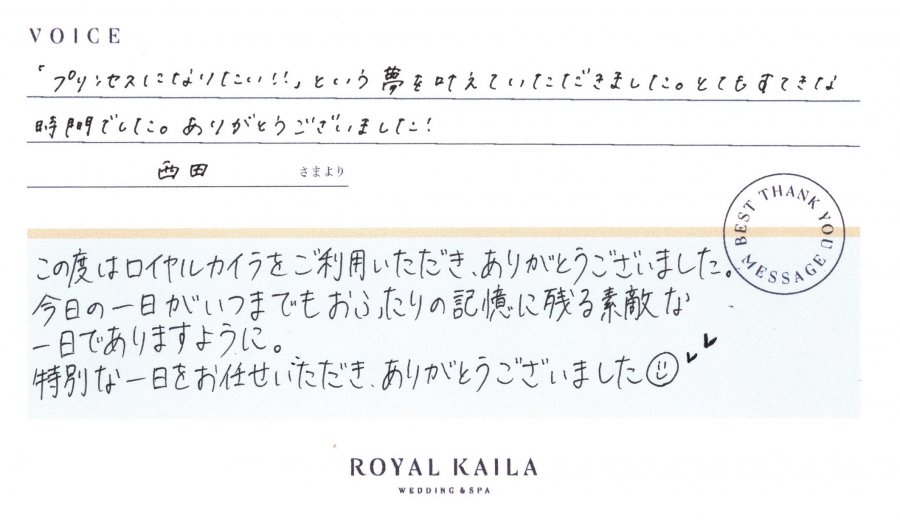 VOICE
「プリンセスになりたい!!」という夢を叶えていただきました。とてもすてきな
時間でした。ありがとうございました!
西田 さまより
BEST THANK YOU MESSAGE
この度はロイヤルカイラをご利用いただき、ありがとうございました。
今日の一日がいつまでもおふたりの記憶に残る素敵な
一日でありますように。
特別な一日をお任せいただき、ありがとうございました
ROYAL KAILA
WEDDING & SPA